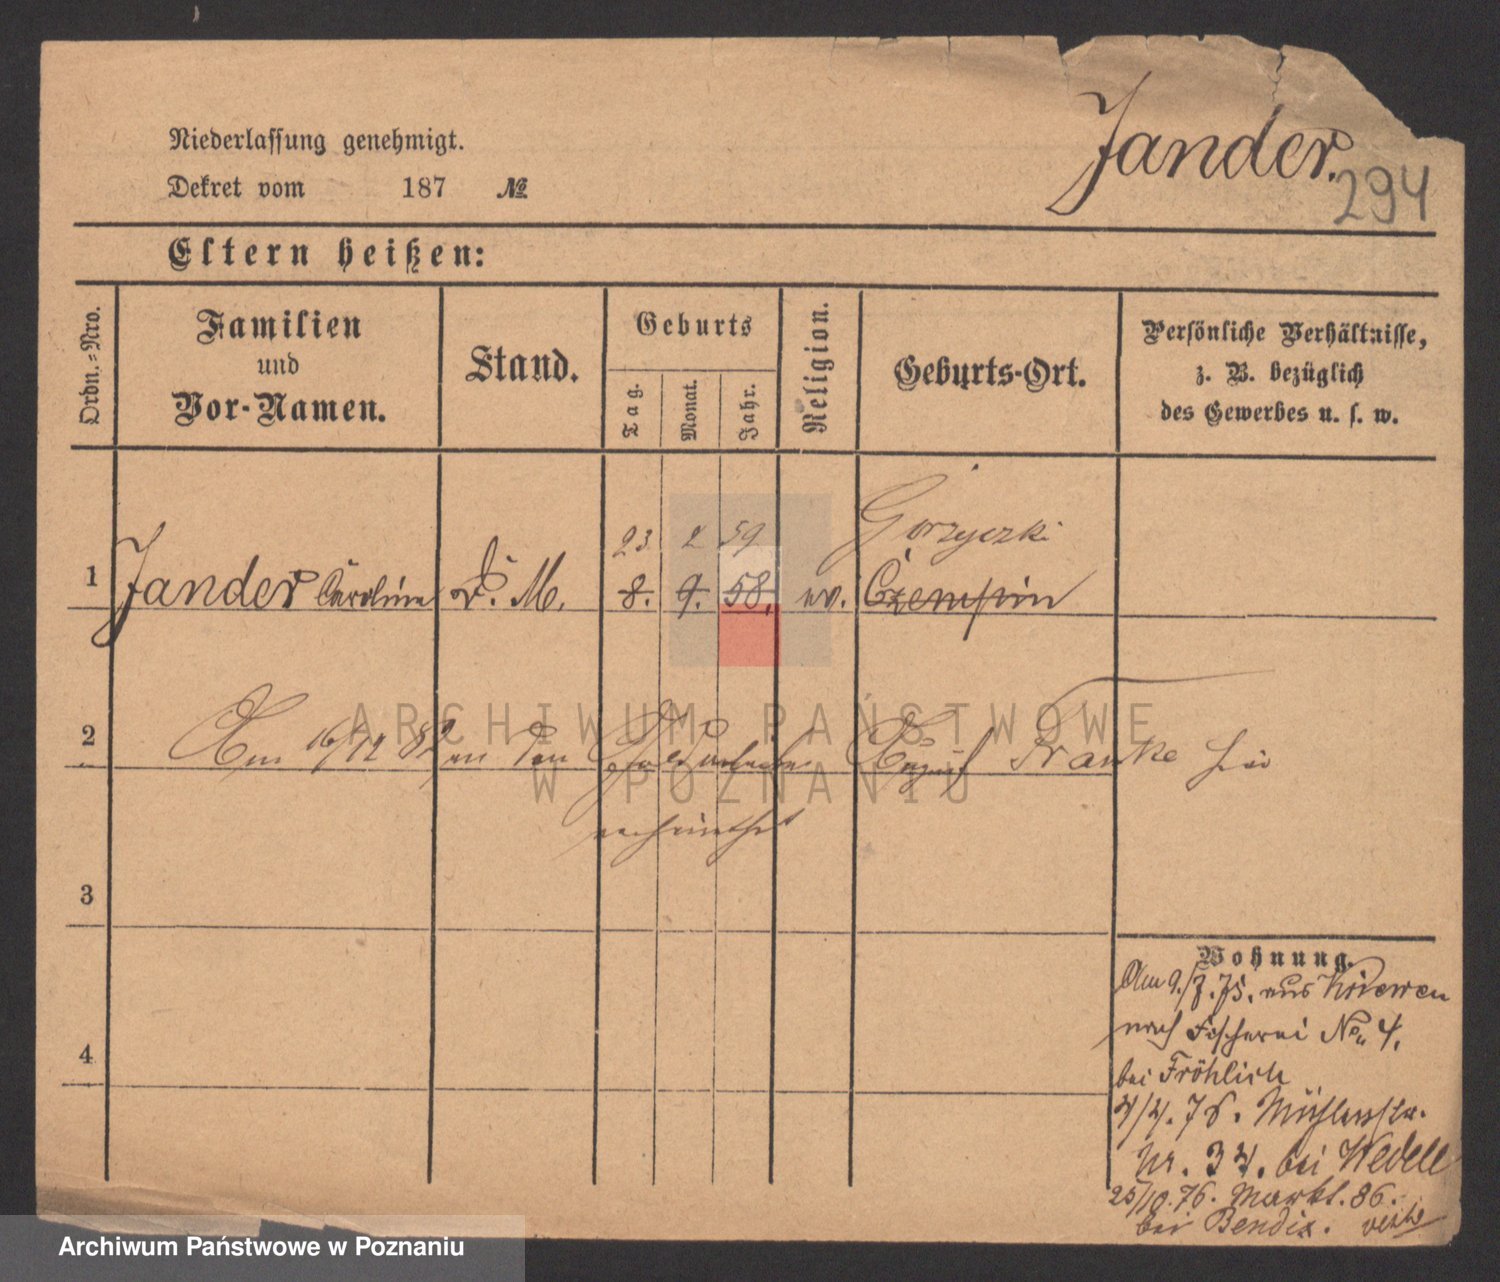 Jander.
294
Niederlassung genehmigt.
Dekret vom 187 №
Eltern heißen:
Ordn.-Nro.
Familien
und
Vor-Namen.
Stand.
Geburts
Tag.
Monat.
Jahr.
Religion.
Geburts-Ort.
Persönliche Verhältnisse,
z. B. bezüglich
des Gewerbes u. s. w.
23 2 59 Gorzyczki
1 Jander Caroline D. M. 8. 9. 58. ev. Czempin
2 Am 16/12 82 an den August Franke hier
verheirathet
3
4
Wohnung.
Am 9./7. 75. aus Kriewen
nach Fischerei No. 4.
bei Fröhlich
4/4. 76. Mühlenstr.
Nr. 34. bei Wedell
25/10. 76. Markt. 86.
bei Bendix.
ARCHIWUM PAŃSTWOWE
W POZNANIU
Archiwum Państwowe w Poznaniu